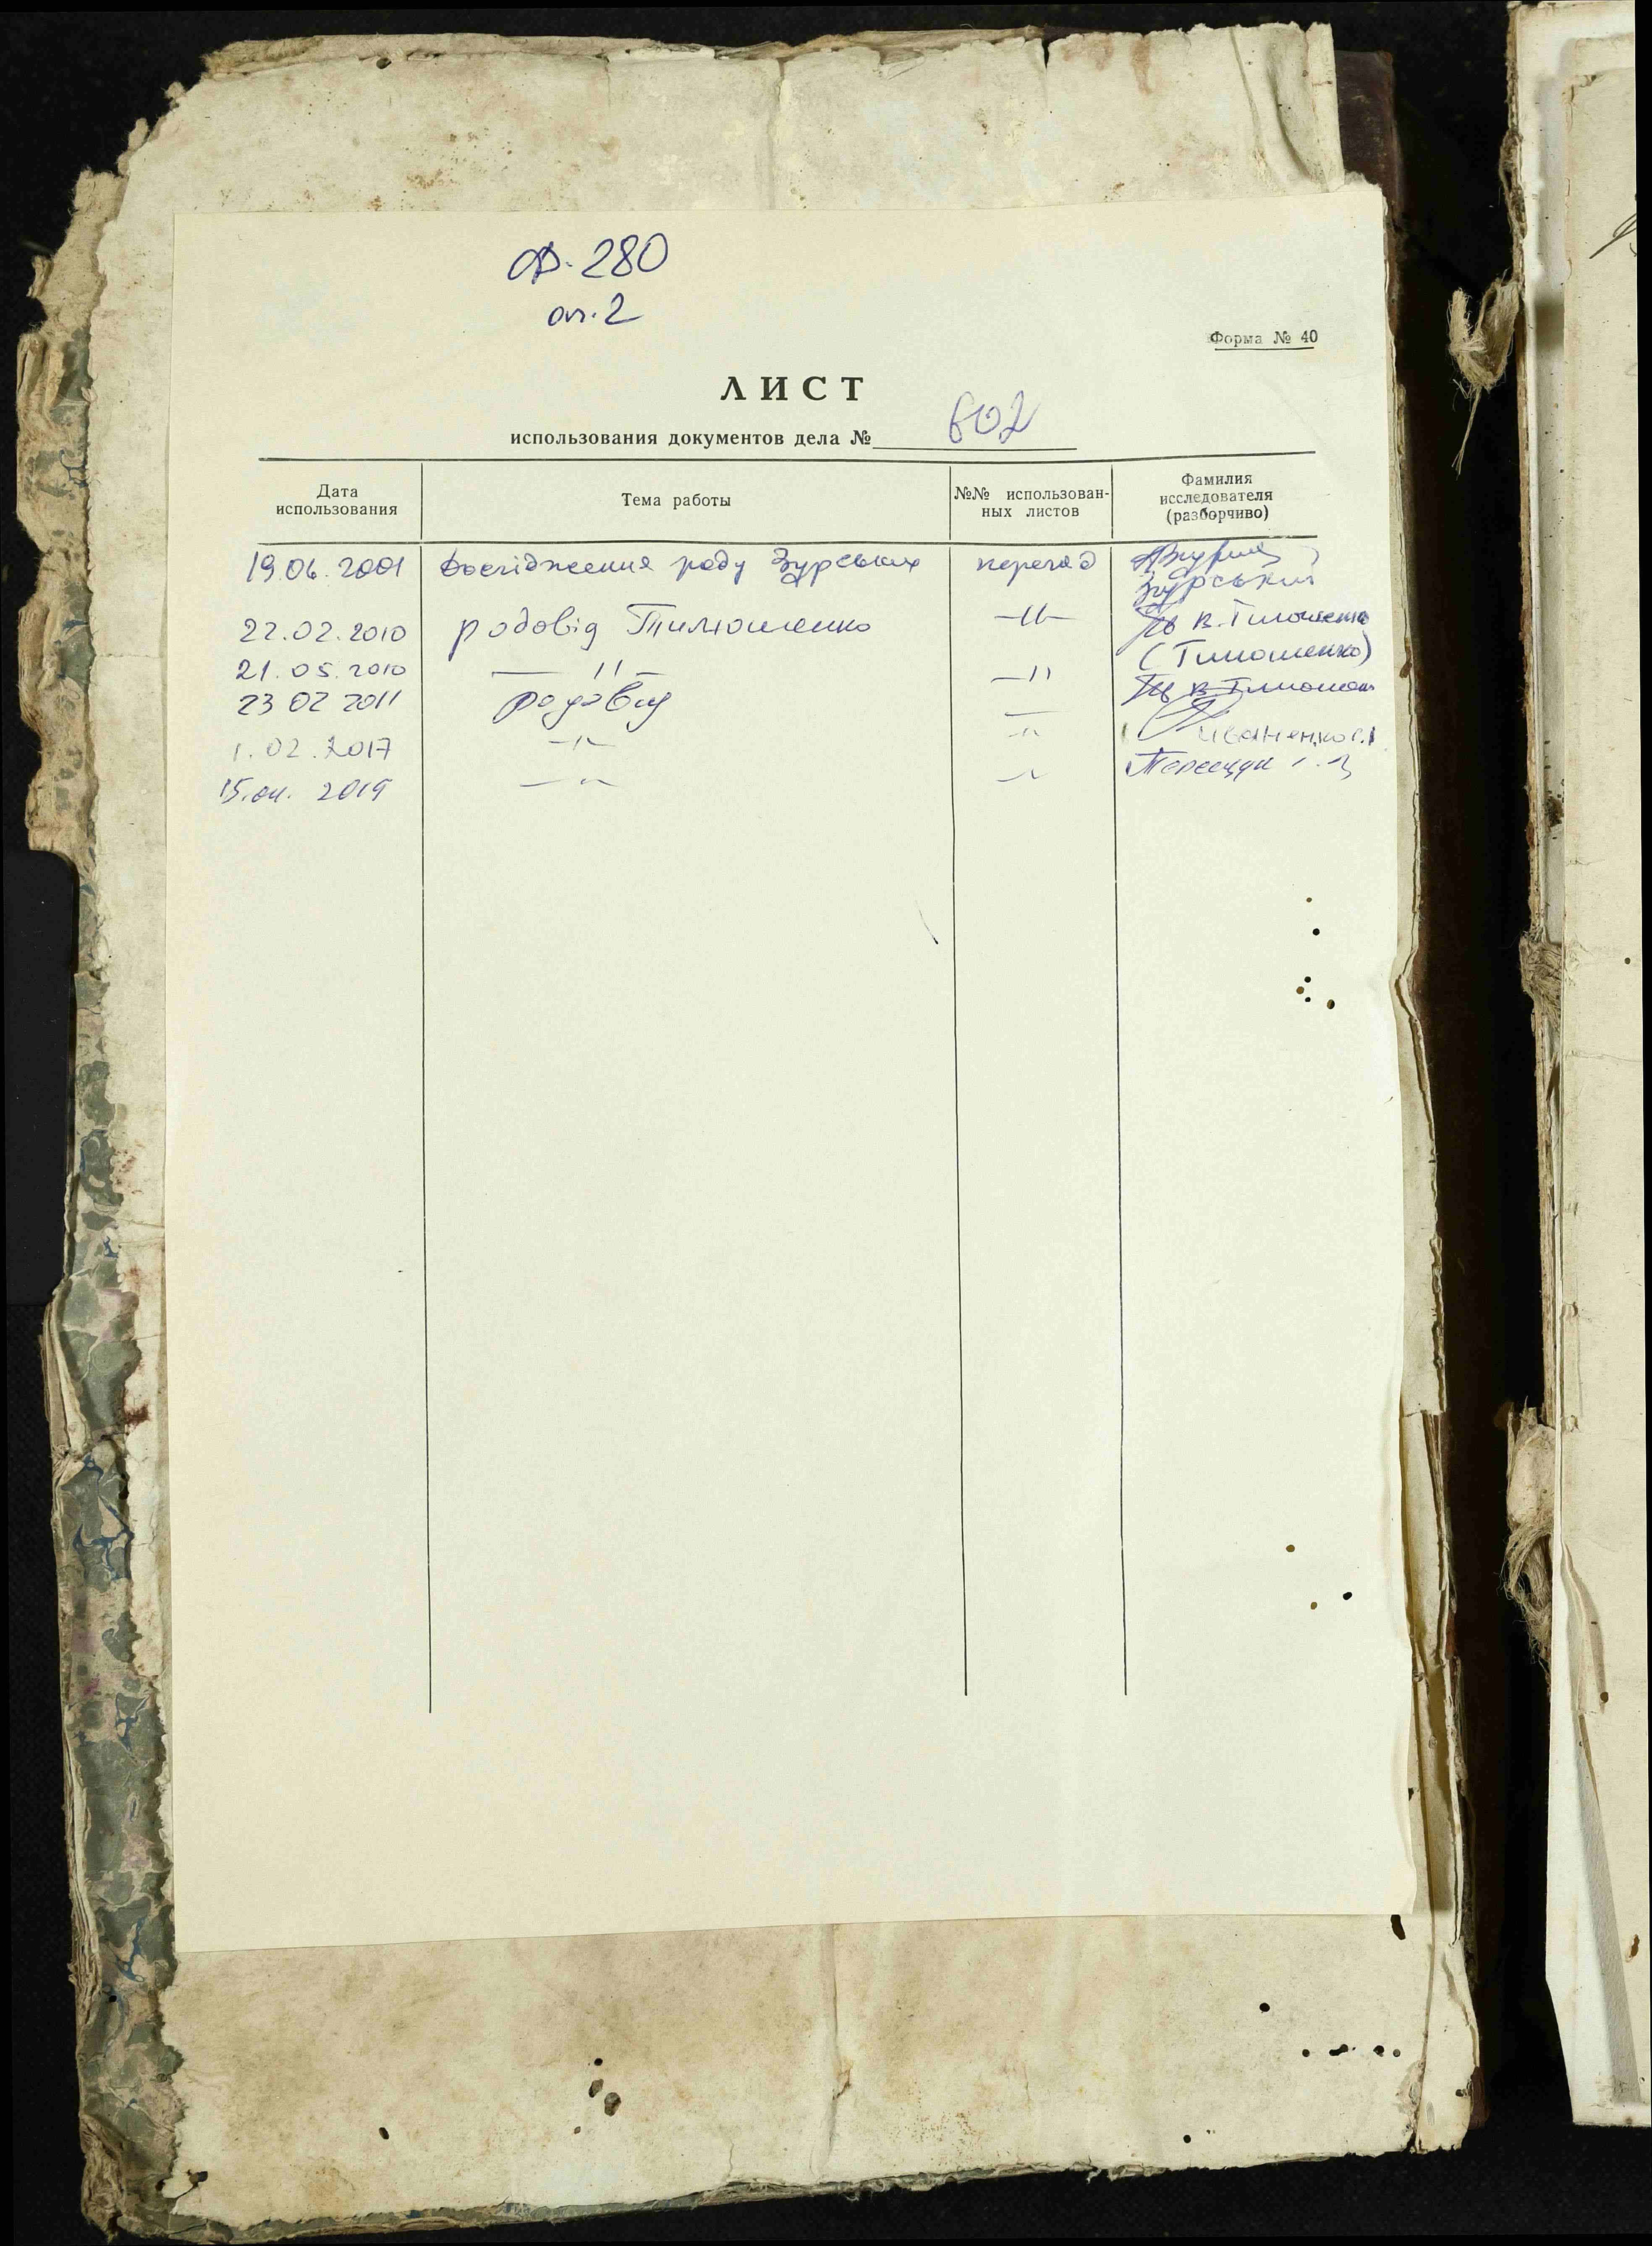 Ф. 280
оп. 2
Форма № 40
ЛИСТ
использования документов дела № 602
Дата использования
Тема работы
№№ использован-
ных листов
Фамилия
исследователя
(разборчиво)
19.06.2001 Дослідження роду Зурських перегляд
Зурський
22.02.2010 родовід Тимошенко —11— В. Тимошенко
(Тимошенко)
21.05.2010 — 11 — —11 В. Тимошен
23 02 2011 родовід —
1.02.2017 —"— —"— Иваненко С.І
15.04.2019 —"— —"—